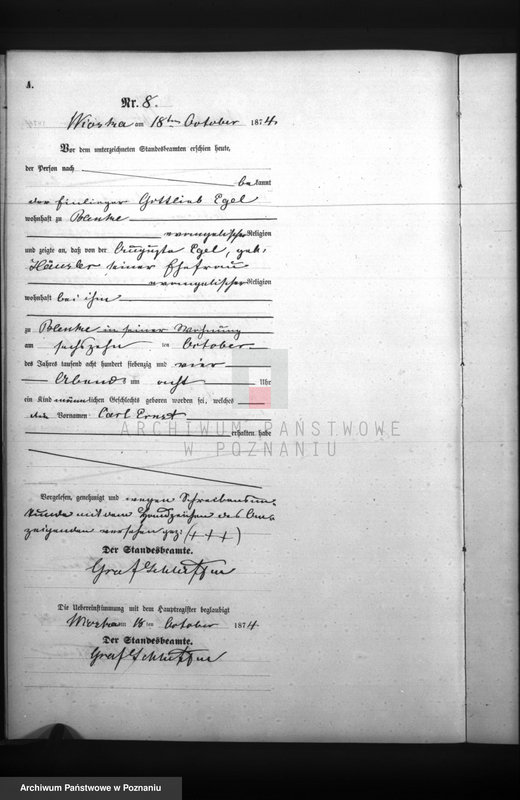 A.
Nr. 8.
Wioska am 18ten October 1874.
Vor dem unterzeichneten Standesbeamten erschien heute,
der Person nach
bekannt
der Einlieger Gottlieb Egel
wohnhaft zu Blenke
evangelischer Religion
und zeigte an, daß von der Auguste Egel, geb.
Hänsler seiner Ehefrau
evangelischer Religion
wohnhaft bei ihm
zu Blenke in seiner Wohnung
am sechszehn ten October
des Jahres tausend acht hundert siebenzig und vier
Abends um acht Uhr
ein Kind männlichen Geschlechts geboren worden sei, welches
die Vornamen Carl Ernst
erhalten habe
Vorgelesen, genehmigt und wegen Schreibensun-
kunde mit dem Handzeichen des An-
zeigenden versehen gez: (+++)
Der Standesbeamte.
Graf
Die Uebereinstimmung mit dem Hauptregister beglaubigt
Wioska am 18 ten October 1874.
Der Standesbeamte.
Graf
ARCHIWUM PAŃSTWOWE
W POZNANIU
Archiwum Państwowe w Poznaniu